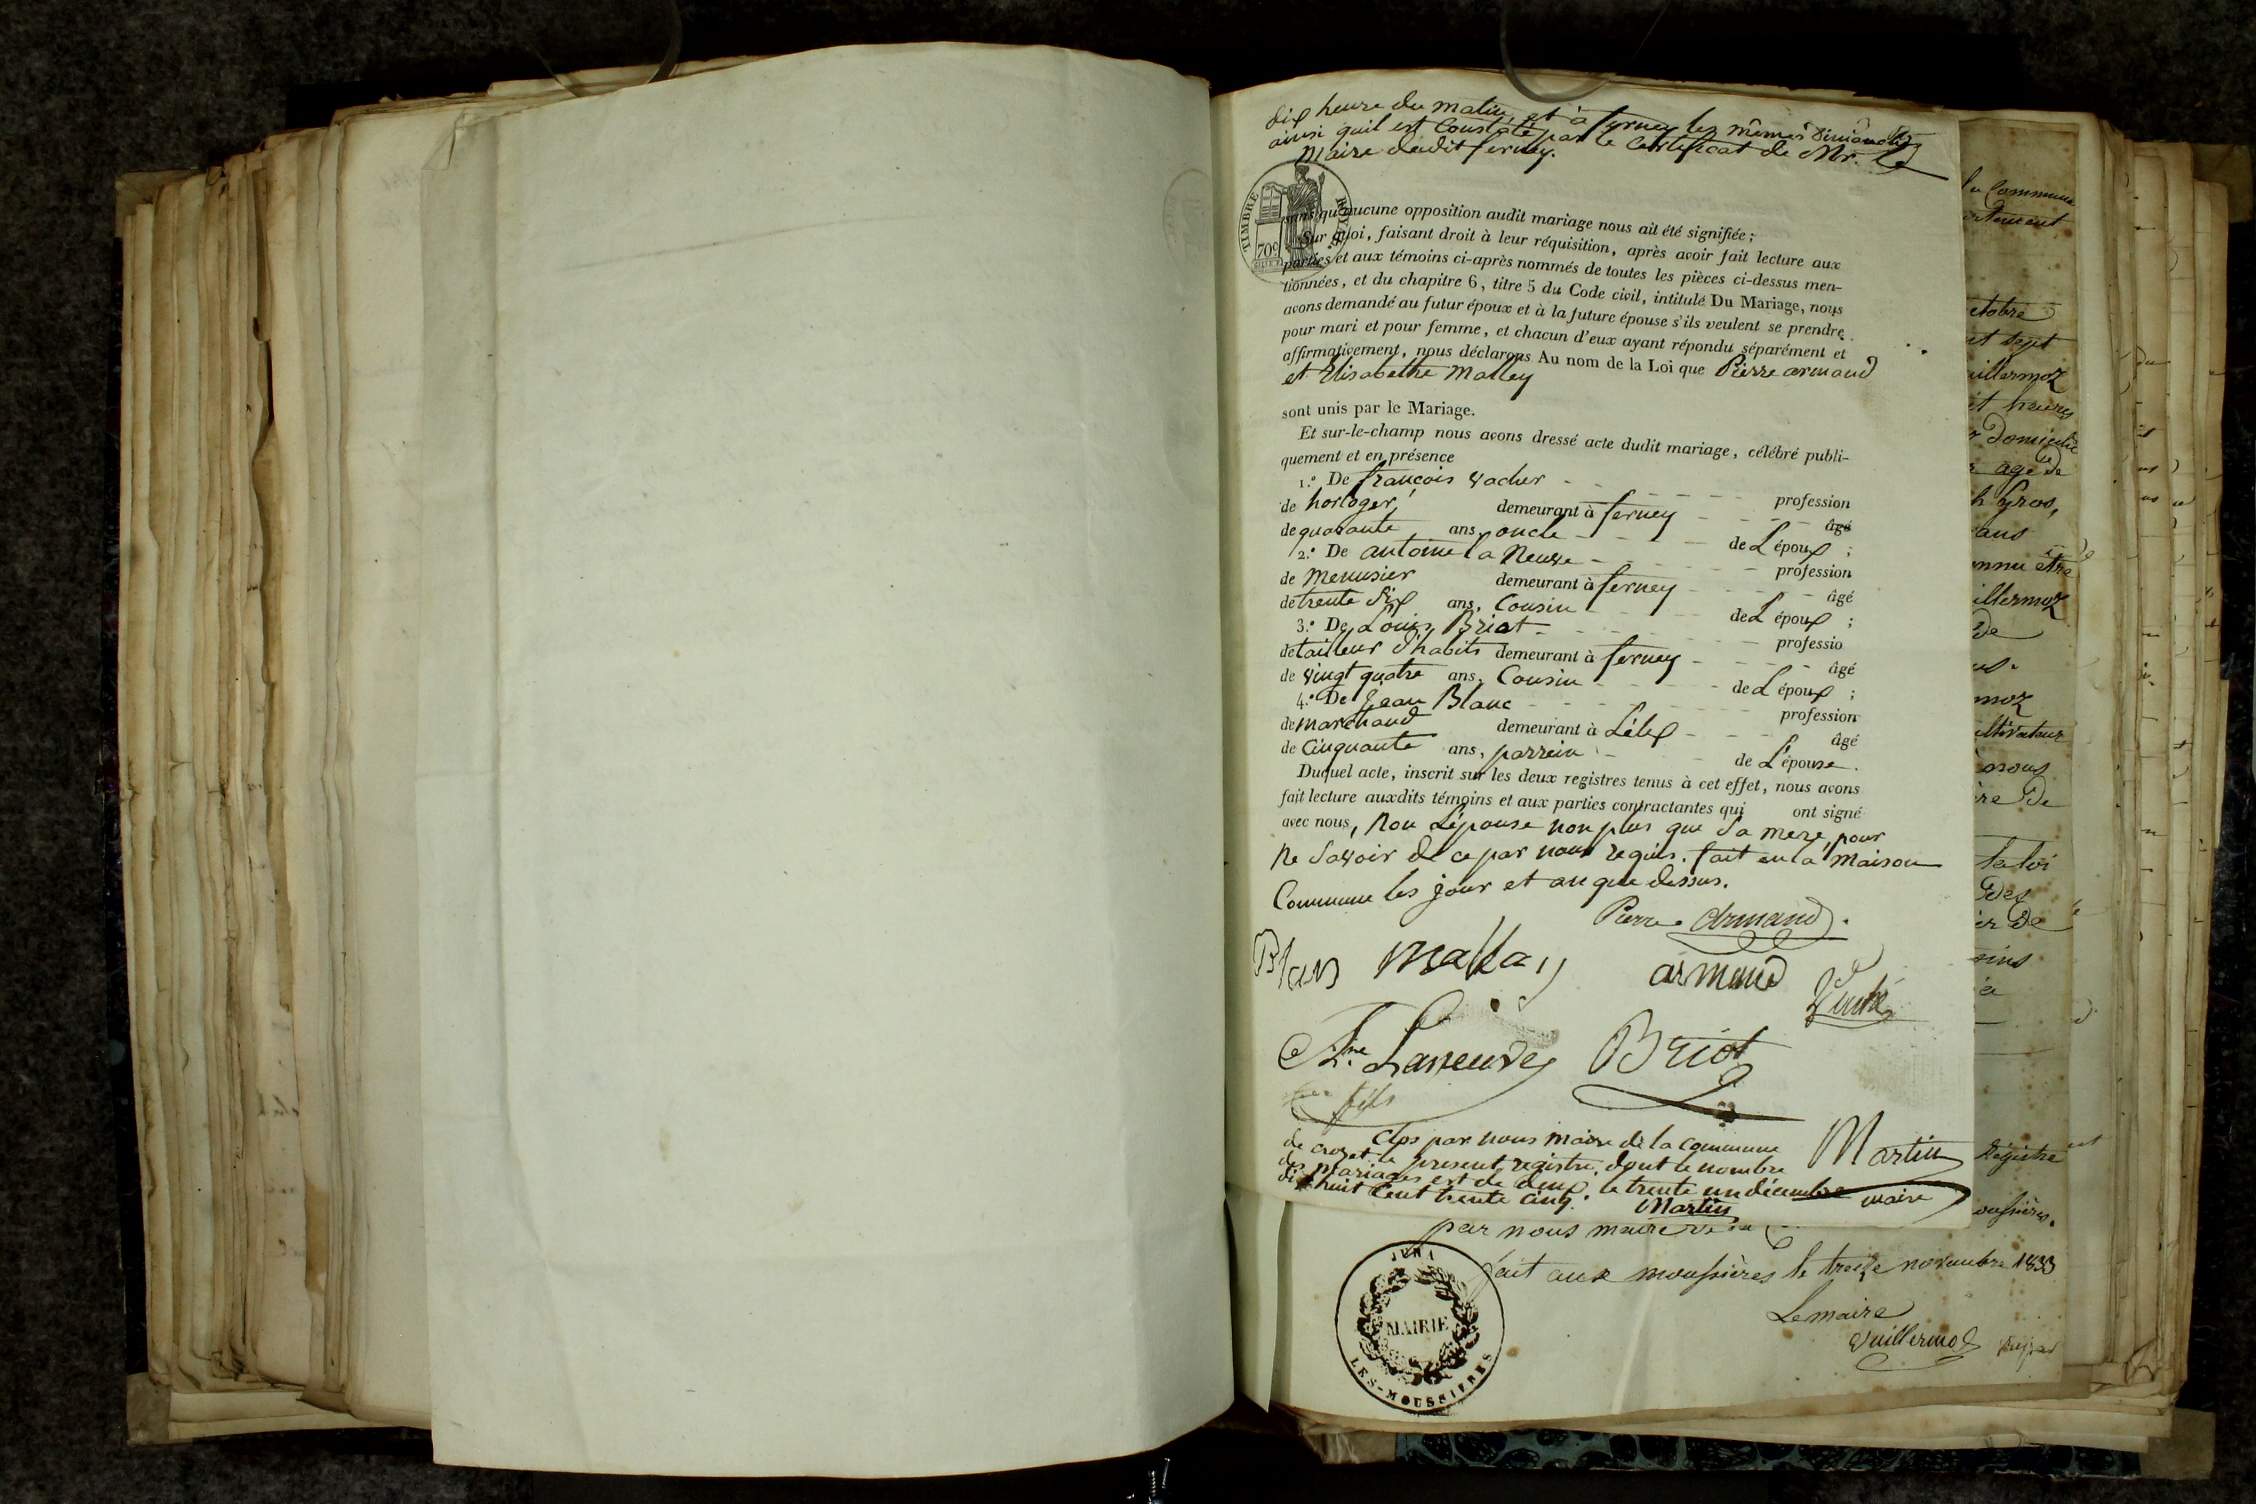 dix heure du matin, et à ferney les mêmes dimanches
ainsi quil est Constaté par le Certificat de Mr. Le
Maire dudit ferney.
TIMBRE ROYAL
70c
sans qu'aucune opposition audit mariage nous ait été signifiée;
Sur quoi, faisant droit à leur réquisition, après avoir fait lecture aux
parties et aux témoins ci-après nommés de toutes les pièces ci-dessus men-
tionnées, et du chapitre 6, titre 5 du Code civil, intitulé Du Mariage, nous
avons demandé au futur époux et à la future épouse s'ils veulent se prendre
pour mari et pour femme, et chacun d'eux ayant répondu séparément et
affirmativement, nous déclarons Au nom de la Loi que Pierre armand
et Elisabethe Malley
sont unis par le Mariage.
Et sur-le-champ nous avons dressé acte dudit mariage, célébré publi-
quement et en présence
1.° De françois vacher profession
de horloger, demeurant à ferney âgé
de quarante ans, oncle de L'époux ;
2.° De antoine la Neuve profession
de Menusier demeurant à ferney âgé
de trente six ans, Cousin de L'époux ;
3.° De Louis Briot professio
de tailleur d'habits demeurant à ferney âgé
de vingt quatre ans, Cousin de L'époux ;
4.° De Jean Blanc profession
de marchand demeurant à Lélex âgé
de Cinquante ans, parrein de L'épouse.
Duquel acte, inscrit sur les deux registres tenus à cet effet, nous avons
fait lecture auxdits témoins et aux parties contractantes qui ont signé
avec nous, Non L'épouse non plus que Sa mere, pour
Ne Savoir de ce par nous requis. fait en la Maison
Commune les jour et an que dessus.
Pierre Armand.
Blanc Mallay armand
Ane Laneuve Briot
fils
Clos par nous maire de la commune
de crozet le present registre, dont le nombre
des mariages est de deux. le trente un décembre
dix huit Cent trente cinq. Martin
Martin
maire
par nous maire de la
fait aux moussières le treize novembre 1833
Le maire
Vuillermoz
JURA
MAIRIE
LES-MOUSSIERES
la Commune
octobre
et sept
uillermoz
it heures
r domicilié
age de
ans
onnu être
illermoz
de
moz
ultivateur
nous
ire de
la loi
des
er de
oins
Régistre
oussières.